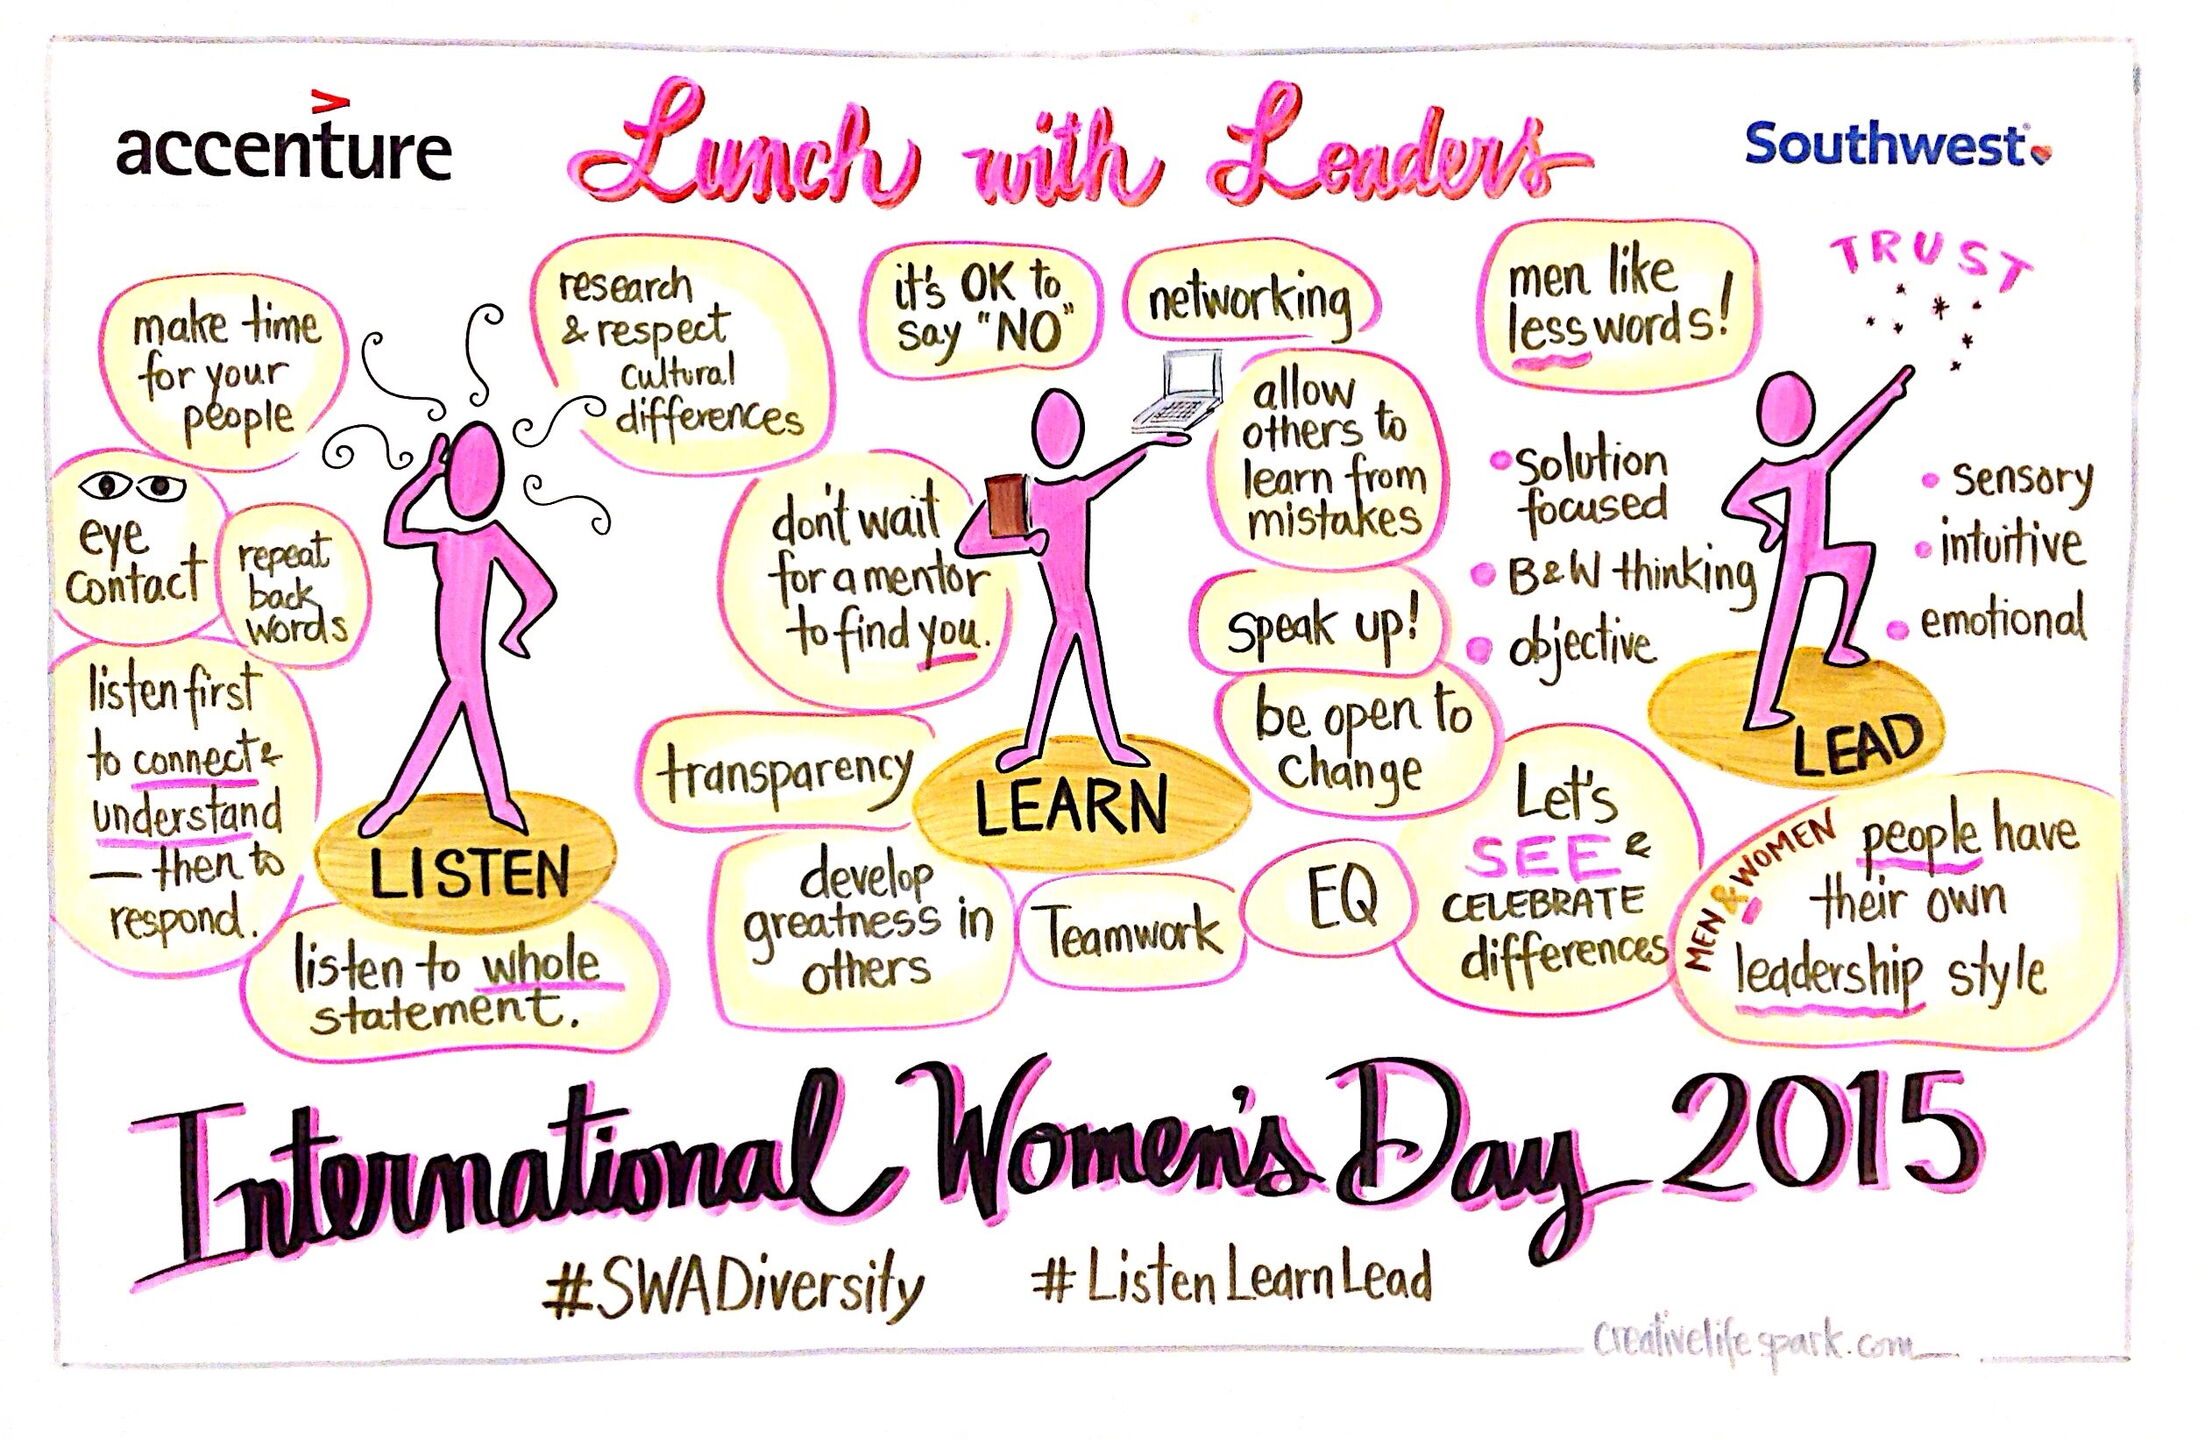 accenture
Lunch with Leaders
Southwest
make time
for your
people
eye
contact
repeat
back
words
listen first
to connect &
understand
— then to
respond.
listen to whole
statement.
LISTEN
research
& respect
cultural
differences
it's OK to
say "NO"
networking
don't wait
for a mentor
to find you.
allow
others to
learn from
mistakes
speak up!
be open to
change
transparency
LEARN
develop
greatness in
others
Teamwork
EQ
men like
less words!
TRUST
• solution
focused
• B&W thinking
• objective
• sensory
• intuitive
• emotional
LEAD
Let's
SEE &
CELEBRATE
differences
MEN & WOMEN
people have
their own
leadership style
International Women's Day 2015
#SWADiversity
#ListenLearnLead
creativelifespark.com